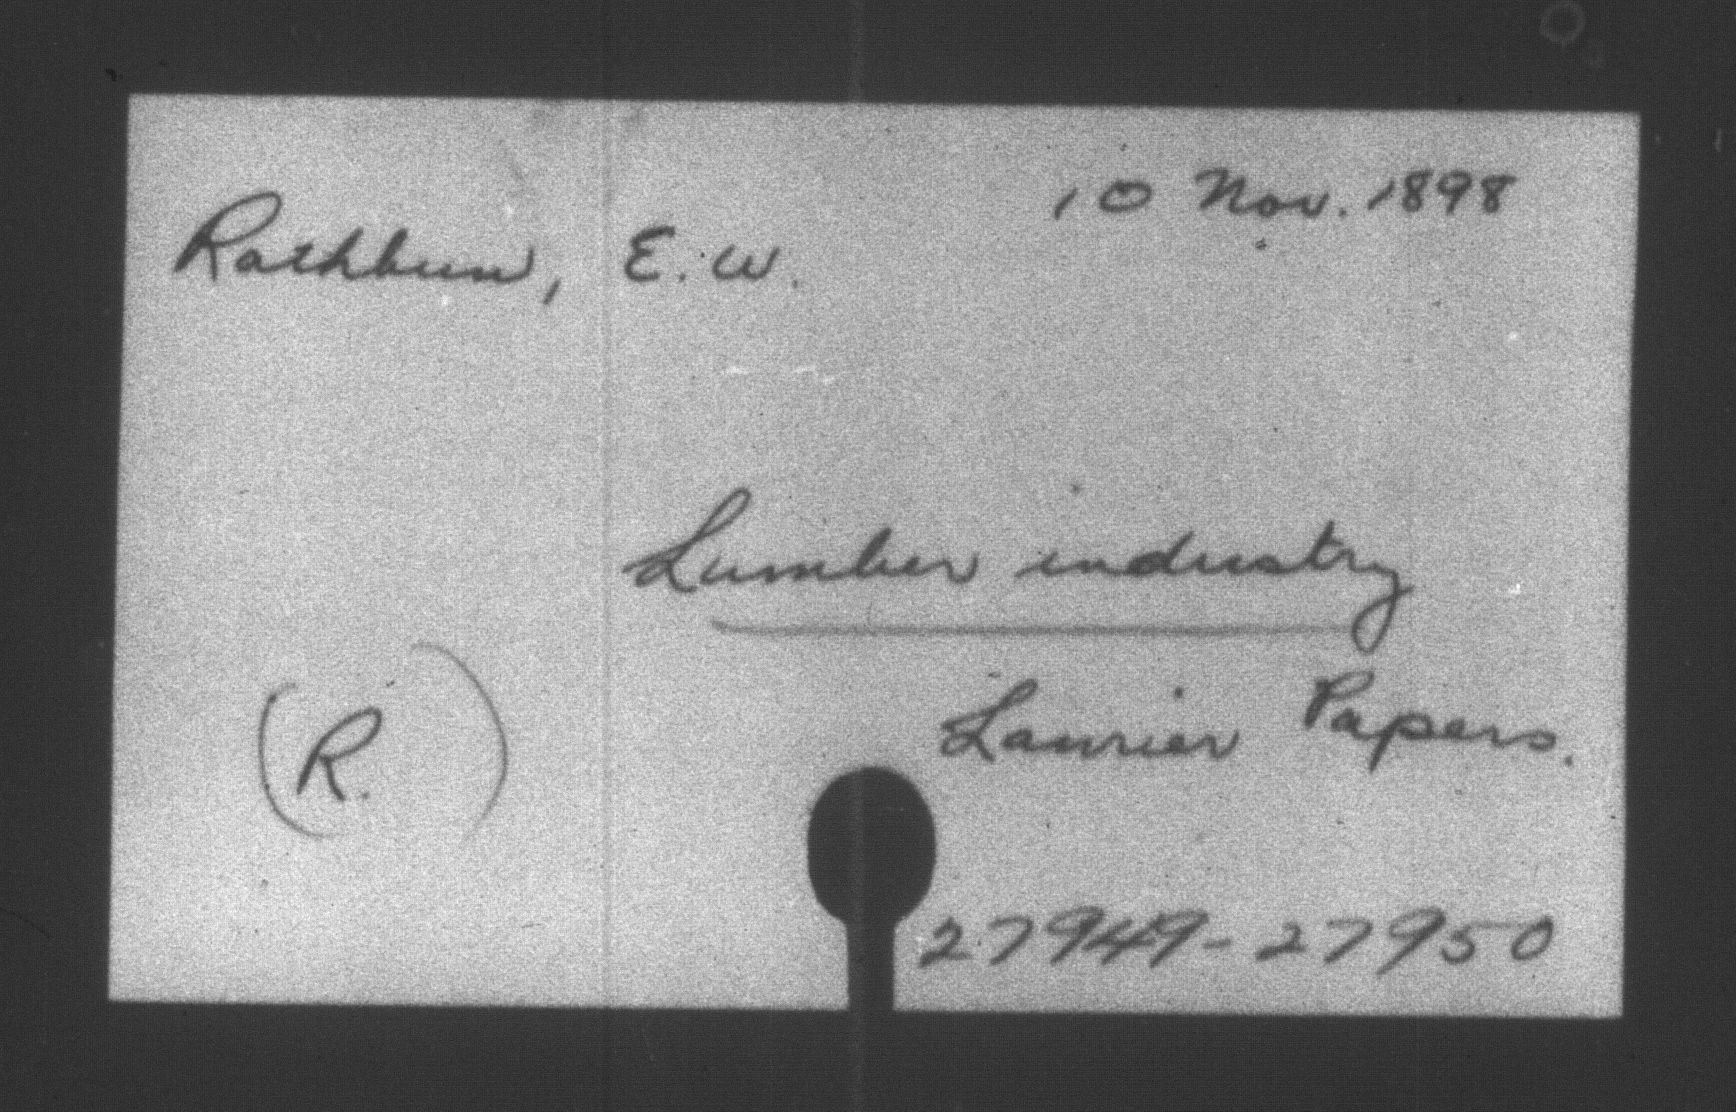 10 Nov. 1898
Rathbun, E. W.
Lumber industry
Laurier Papers.
(R.)
27949-27950